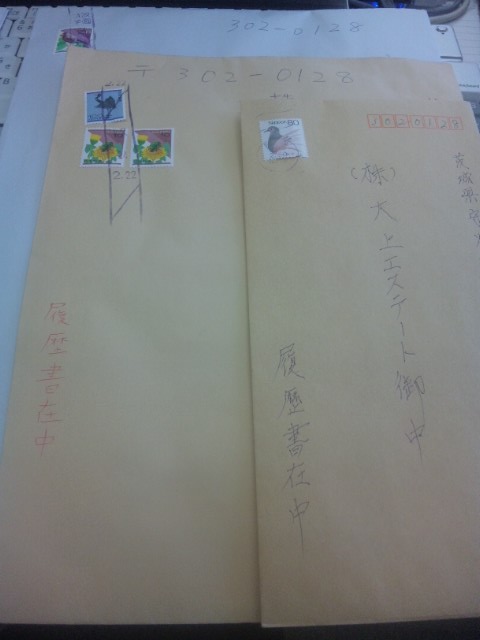 302-0128
〒302-0128
2.22
2.22
履歴書在中
80
3020128
茨城県
(株)大上エステート御中
履歴書在中